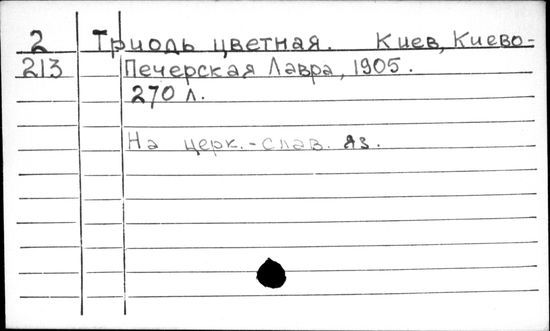 2 Триодь цветная. Киев, Киево-
213 Печерская Лавра, 1905.
270 л.
На церк.-слав. яз.